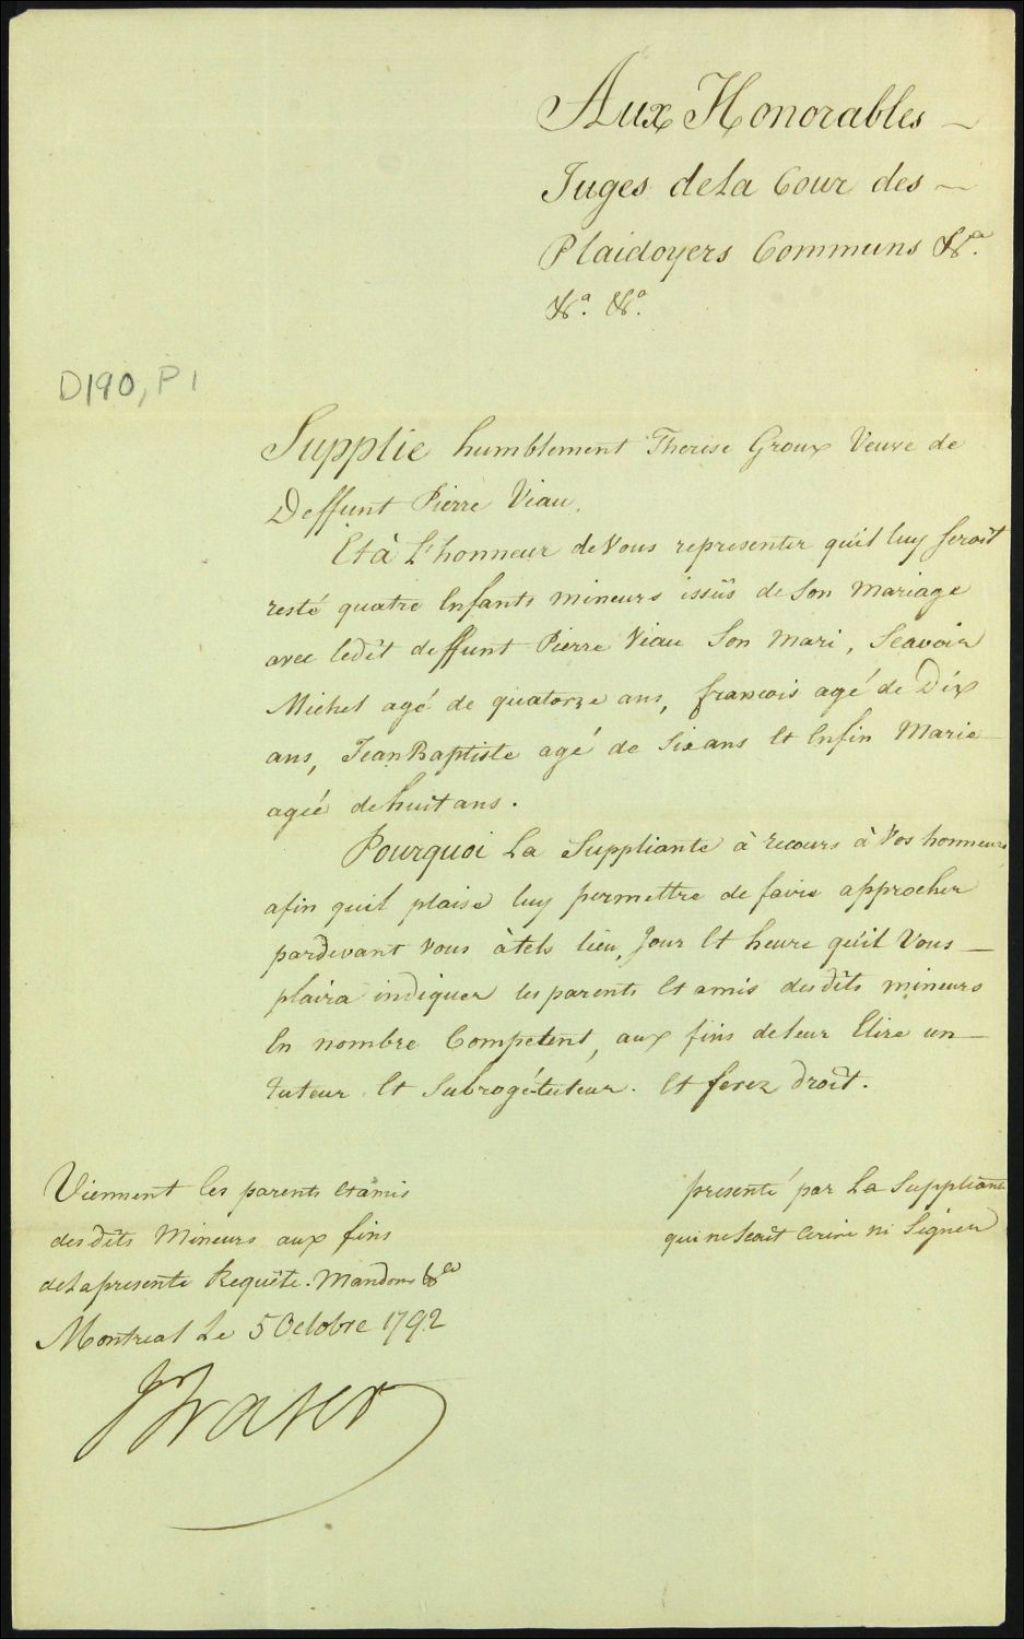 Aux Honorables
Juges dela Cour des
Plaidoyers Communs &ca.
&a. &a.
D190, P1
Supplie humblement Therese Groux Veuve de
Deffunt Pierre Viau.
Et à L'honneur de Vous representer qu'il luy seroit
resté quatre Enfants mineurs issüs de Son mariage
avec ledit deffunt Pierre Viau Son Mari, Scavoir
Michel agé de quatorze ans, francois agé de Dix
ans, Jean Baptiste agé de Six ans Et Enfin Marie
ageé de huit ans.
Pourquoi La Suppliante à recours à Vos honneurs
afin quil plaise luy permettre de faire approcher
pardevant Vous àtels lieu, Jour Et heure qu'il Vous
plaira indiquer les parents Et amis desdits mineurs
En nombre Competent, aux fins de leur Elire un
tuteur Et Subrogé-tuteur. Et ferez droit.
Viennent les parents Et amis
desdits Mineurs aux fins
de La presente Requête. Mandons &ca
Montreal Le 5 Octobre 1792
JFraser
presenté par La Suppliante
qui ne Scait Ecrire ni Signer